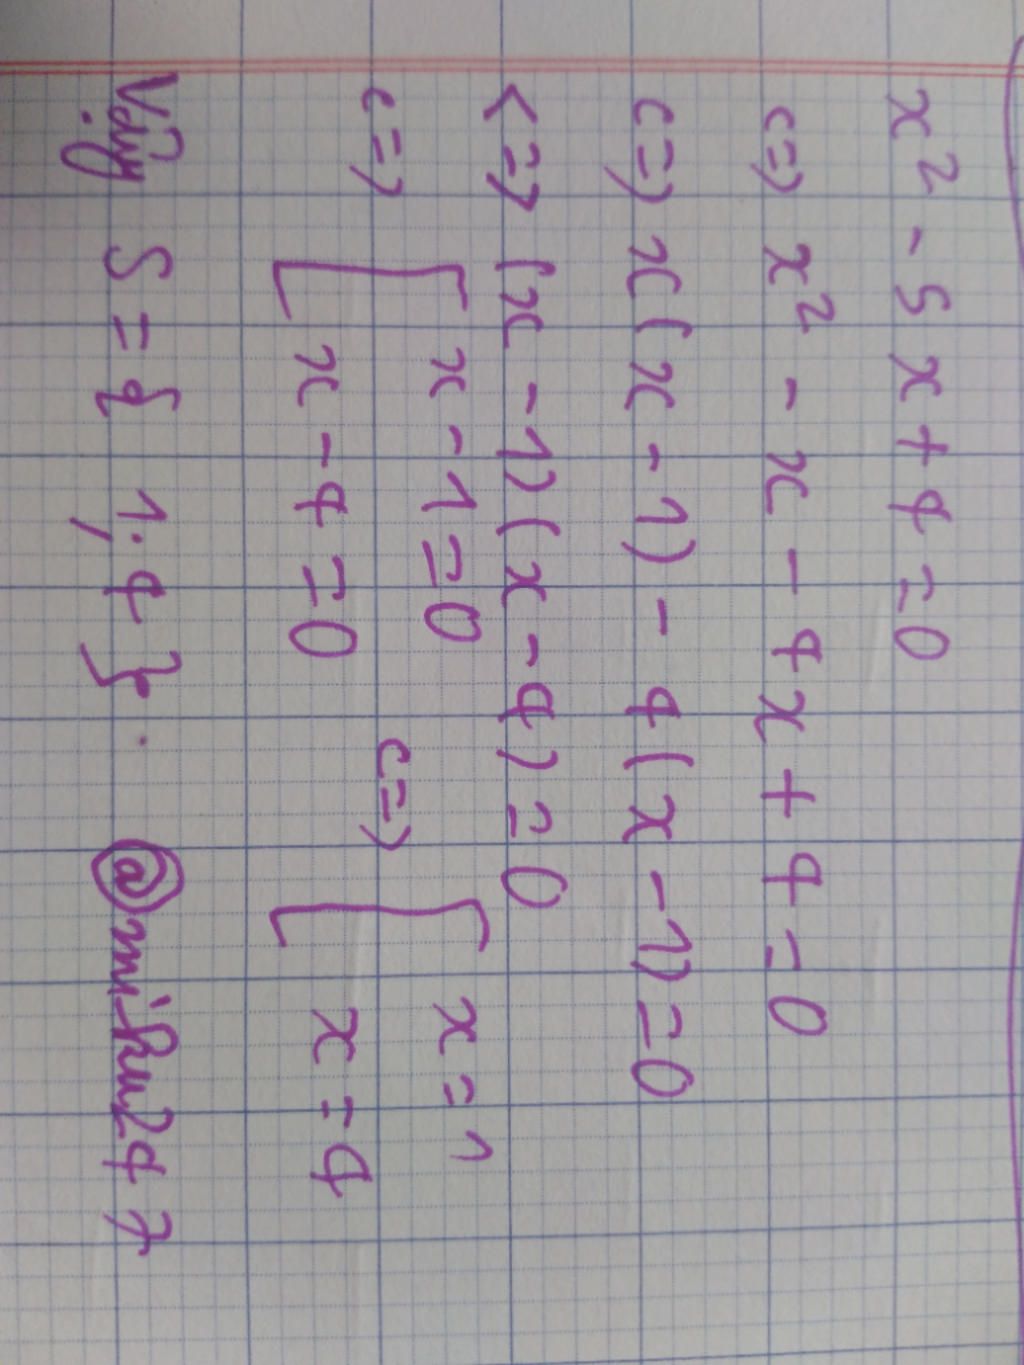 x² - 5x + 4 = 0
<=> x² - x - 4x + 4 = 0
<=> x(x - 1) - 4(x - 1) = 0
<=> (x - 1)(x - 4) = 0
<=> [ x - 1 = 0 <=> [ x = 1
x - 4 = 0 x = 4
Vậy S = { 1; 4 }. @miku247